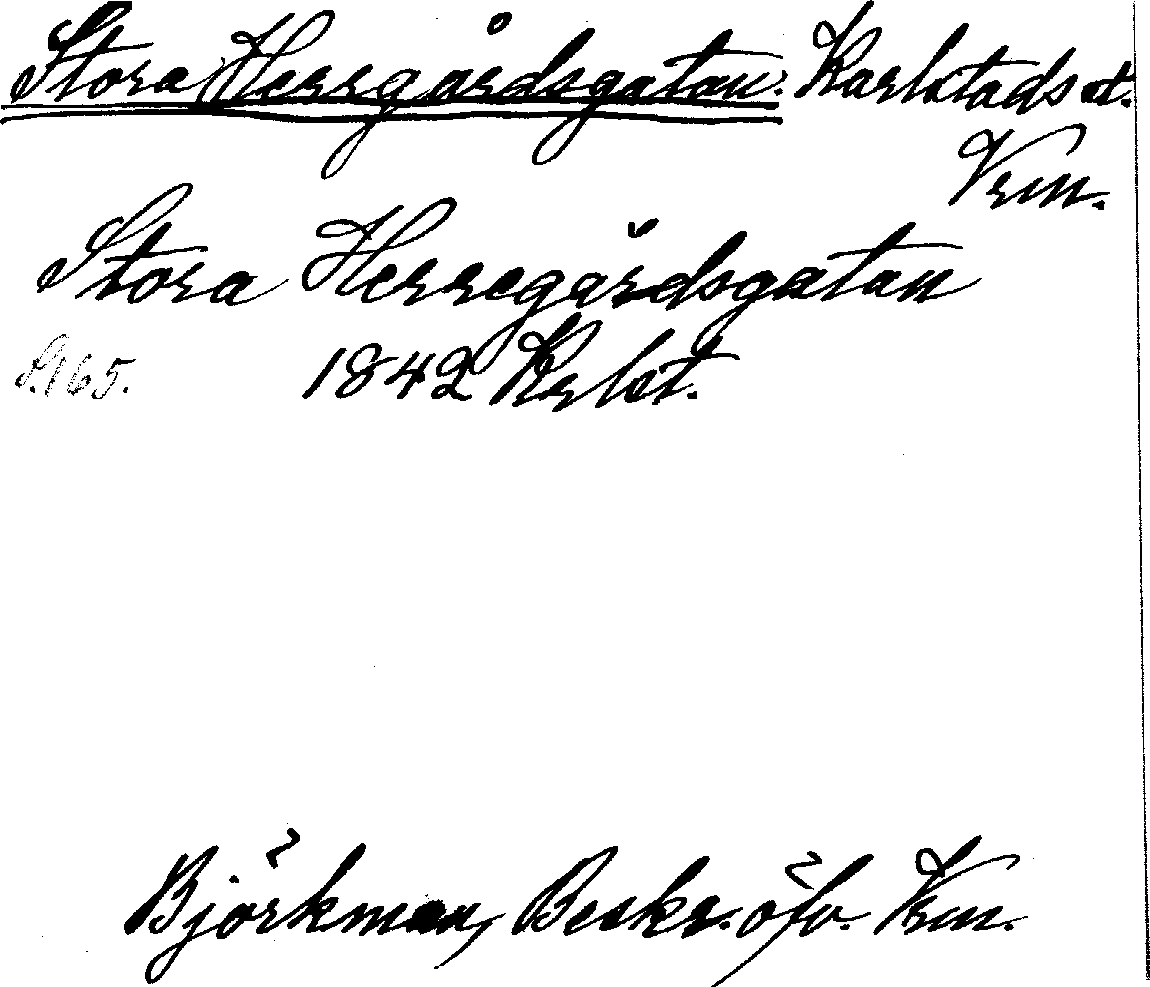 Stora Herrgårdsgatan. Karlstads st.
Vrm.
Stora Herregårdsgatan
S. 165. 1842 Krlst.
Björkman, Beskr. öfv. Vrm.